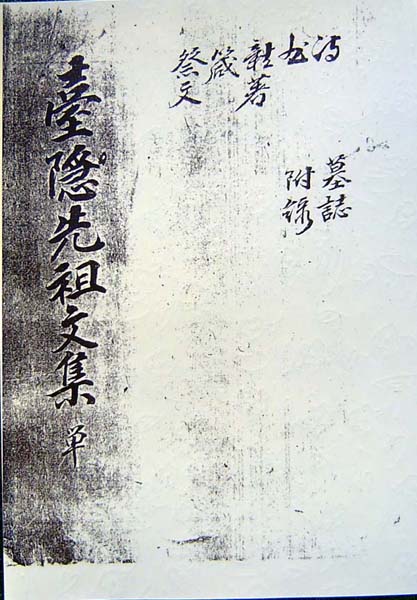 詩
書
雜著
箴
祭文
墓誌
附錄
臺隱先祖文集 單